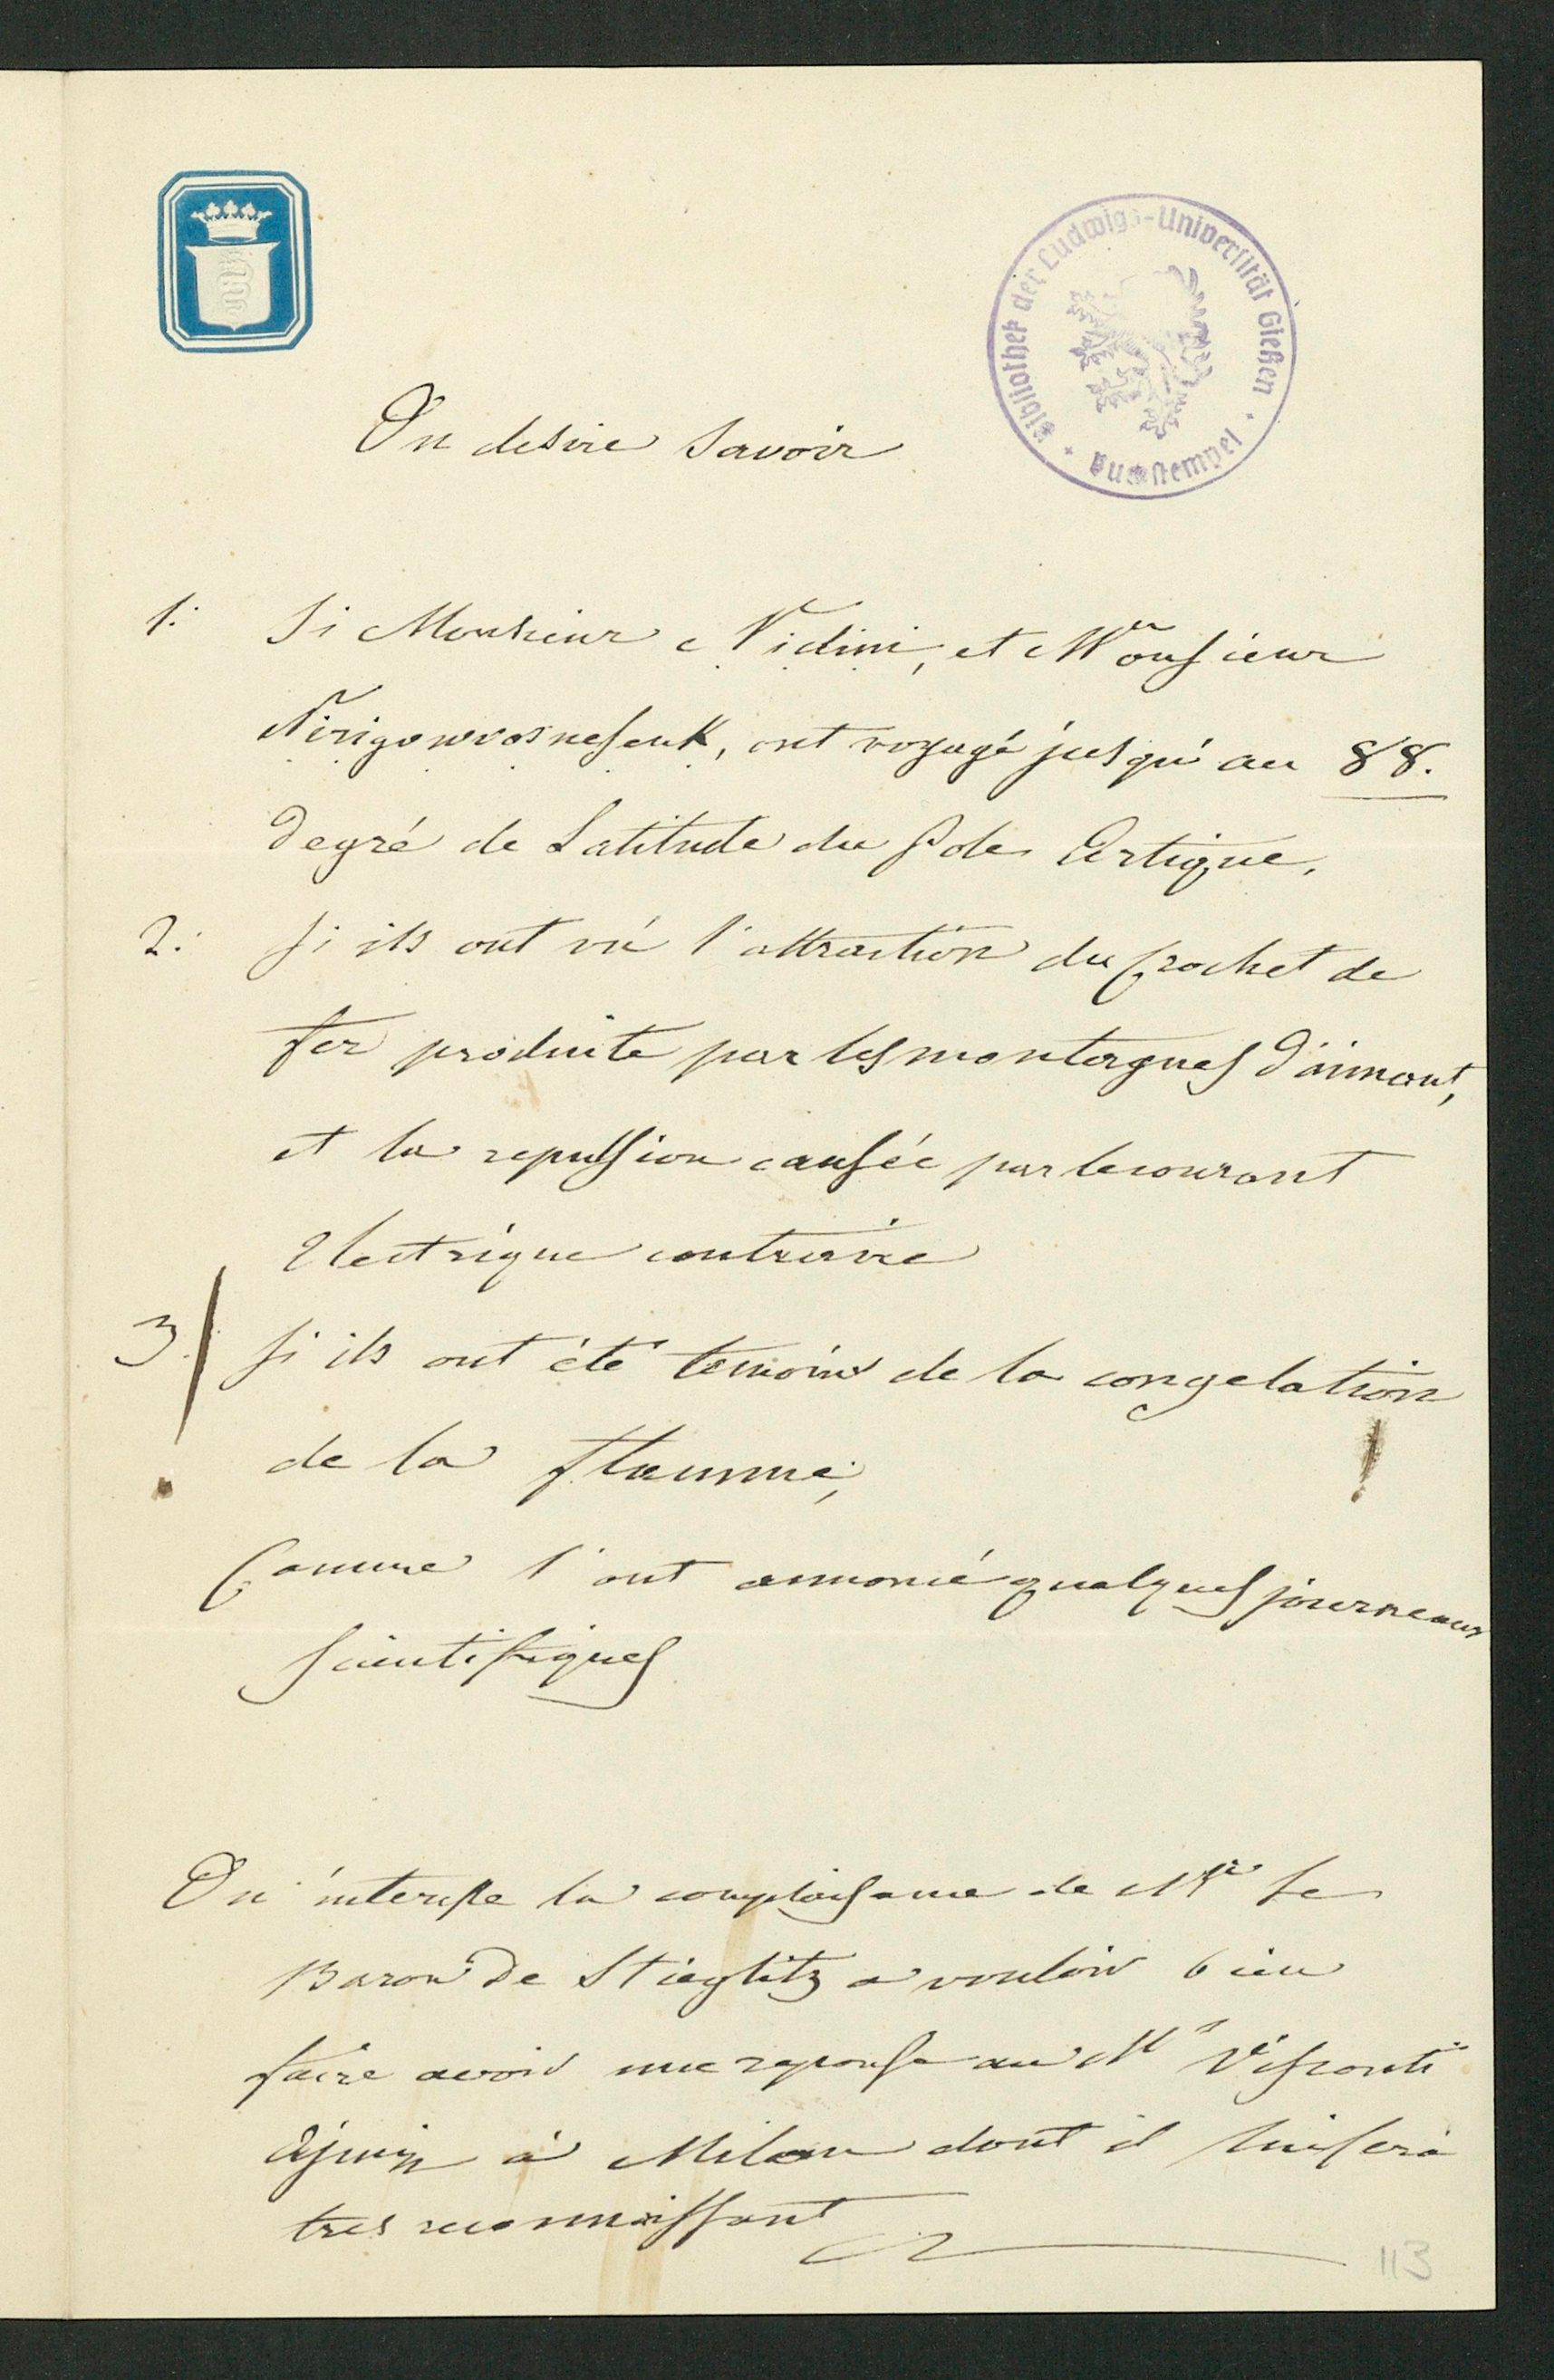 Bibliothek der Ludwigs-Universität Gießen
On desire savoir
1. Si Monsieur Nidini, et Monsieur
, ont voyagé jusqu'au 88.
degré de Latitude du Pole Artique,
2. Si ils ont vú l'attraction du Crochet de
fer produite par les montagnes d'aimant,
et la repulsion causée par le courant
Electrique contraire
3. Si ils ont été temoins de la congelation
de la flamme, !
Comme l'ont annoncé quelques journeaux
Scientifiques
On interesse la complaisance de Mr le
Baron De Stieglitz a vouloir bien
faire avoir une reponse au Mr Visconti
à Milan dont il lui sera
tres reconnaissant
113